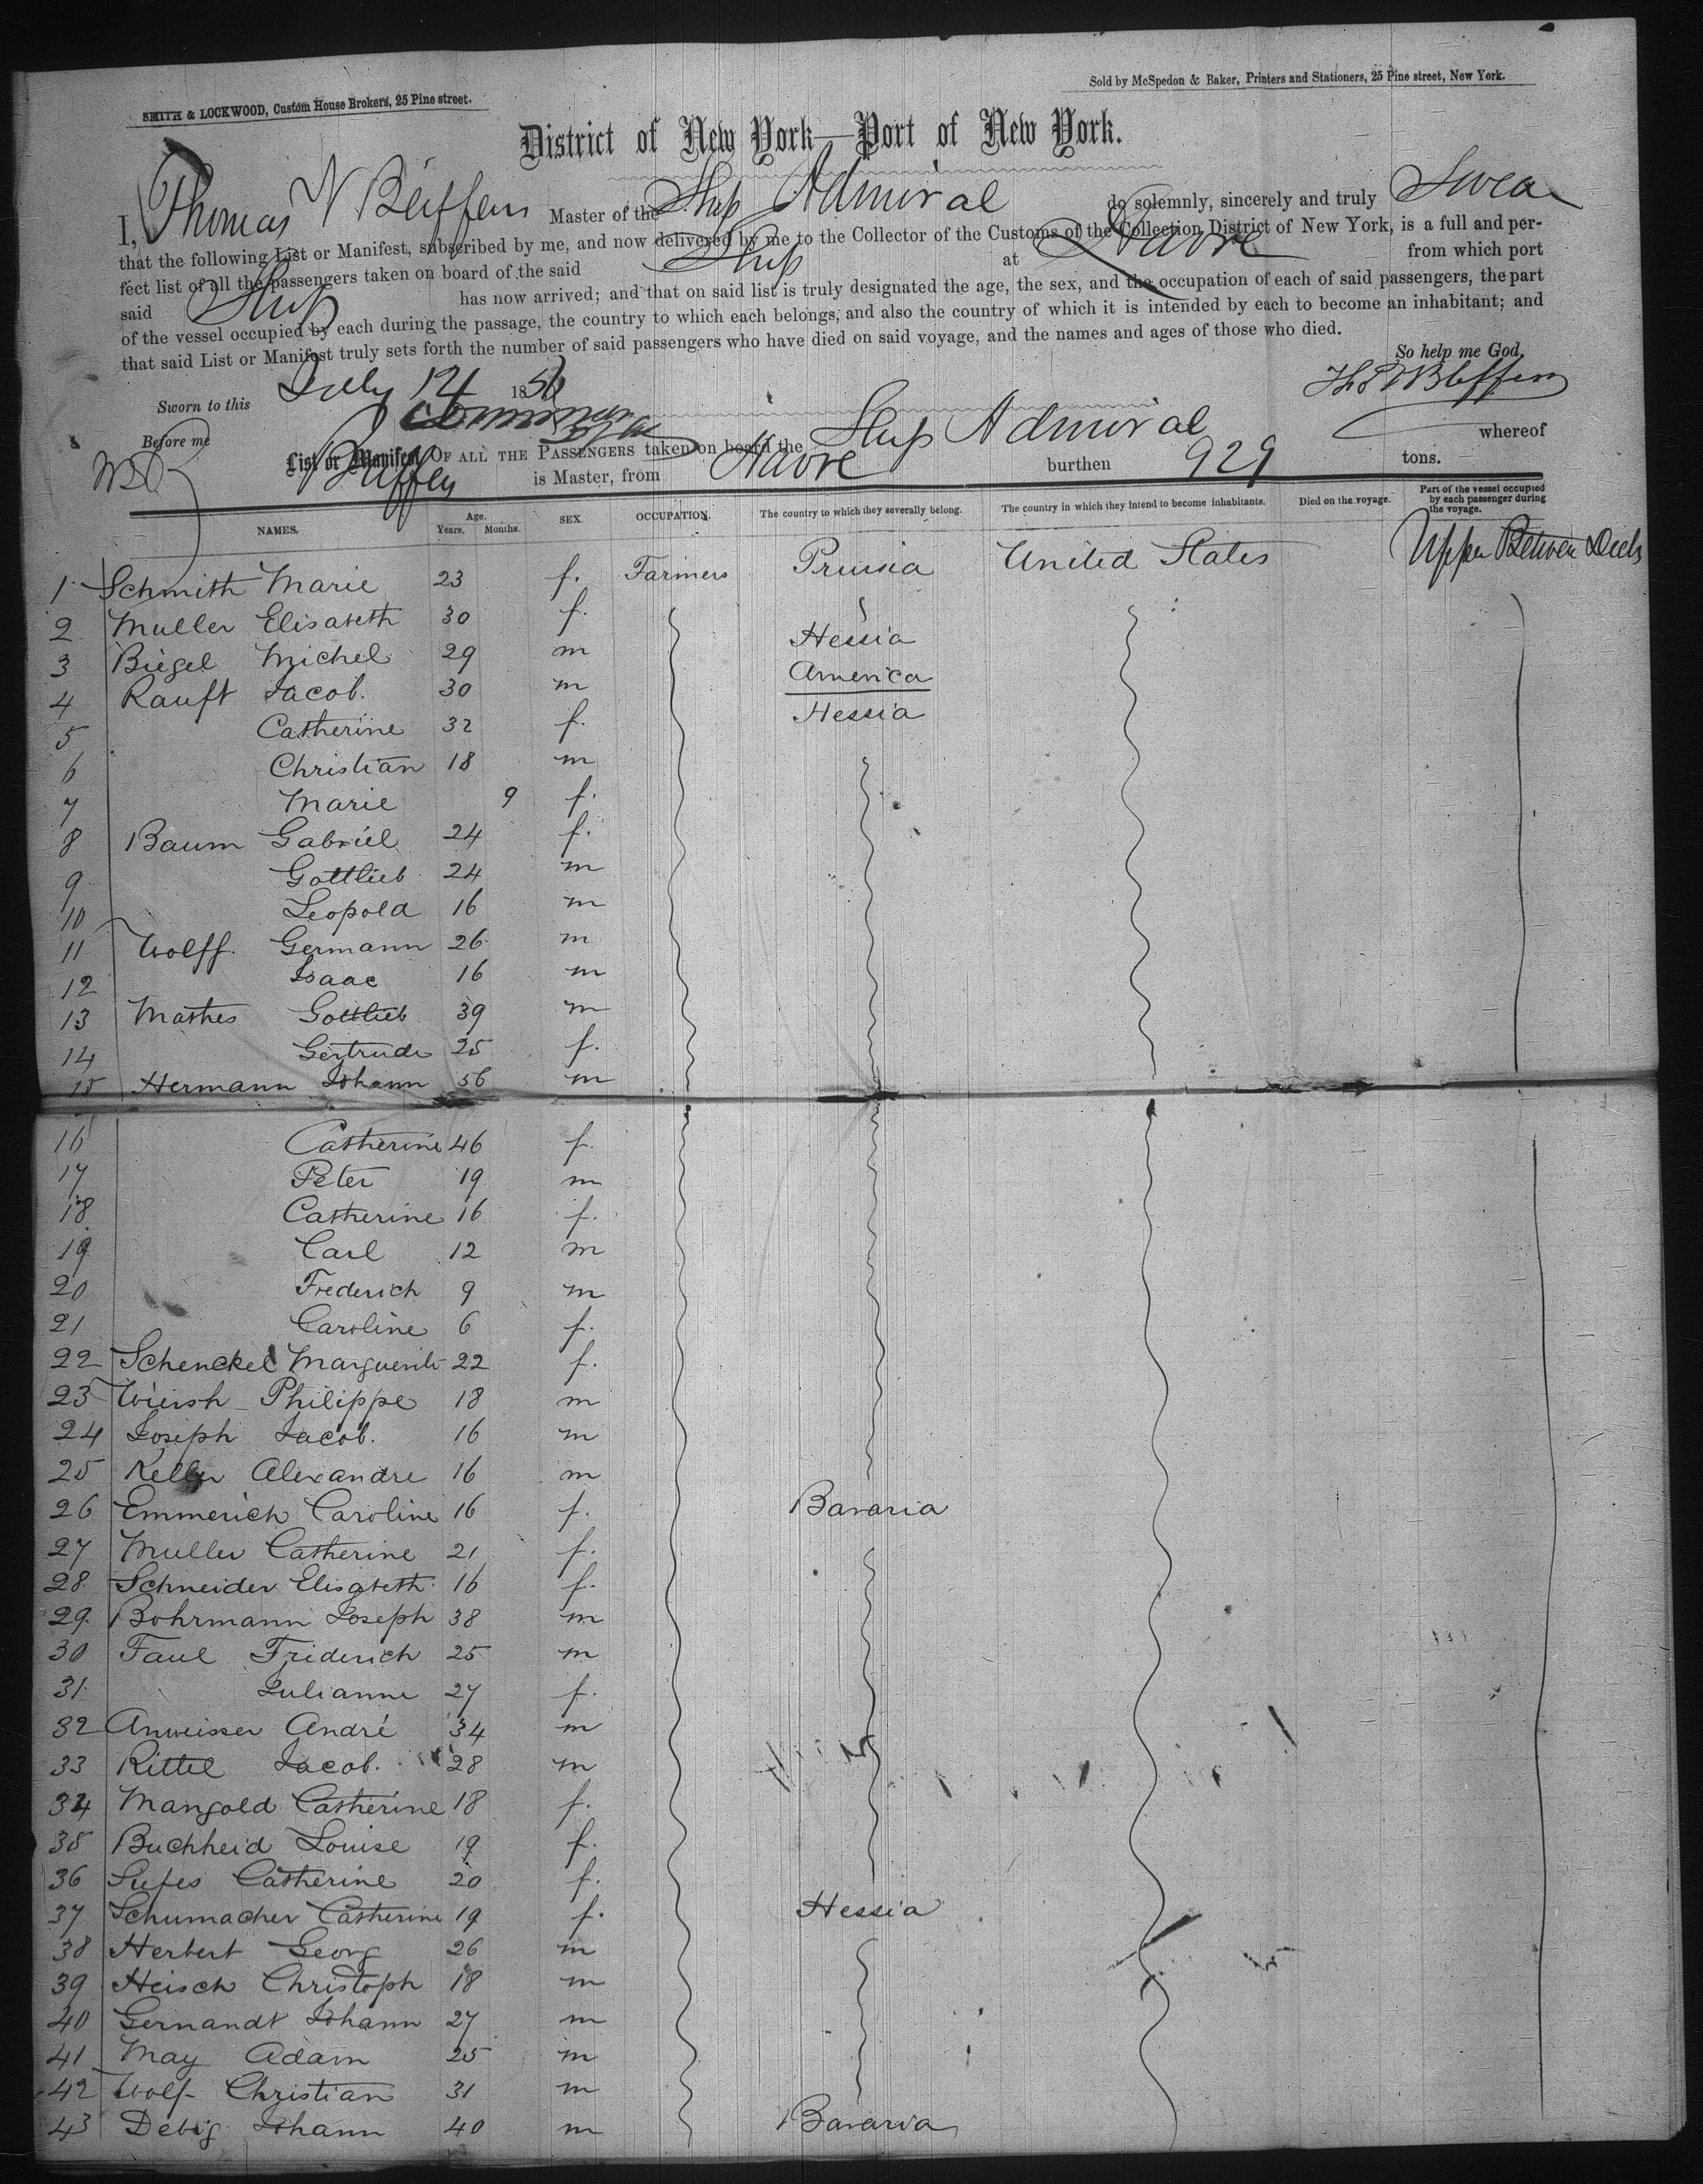 SMITH & LOCKWOOD, Custom House Brokers, 25 Pine street.
Sold by McSpedon & Baker, Printers and Stationers, 25 Pine street, New York.
District of New York—Port of New York.
I, Thomas N Master of the Ship Admiral do solemnly, sincerely and truly Swear
that the following List or Manifest, subscribed by me, and now delivered by me to the Collector of the Customs of the Collection District of New York, is a full and per-
fect list of all the passengers taken on board of the said Ship at Havre from which port
said Ship has now arrived; and that on said list is truly designated the age, the sex, and the occupation of each of said passengers, the part
of the vessel occupied by each during the passage, the country to which each belongs, and also the country of which it is intended by each to become an inhabitant; and
that said List or Manifest truly sets forth the number of said passengers who have died on said voyage, and the names and ages of those who died.
So help me God,
Sworn to this July 14 1856
Before me
List or Manifest OF ALL THE PASSENGERS taken on board the Ship Admiral whereof
is Master, from Havre burthen 929 tons.
NAMES. Age. Years. Months. SEX. OCCUPATION. The country to which they severally belong. The country in which they intend to become inhabitants. Died on the voyage. Part of the vessel occupied by each passenger during the voyage.
1 Schmith Marie 23 f. Farmers Prussia United States Upper Between Decks
2 Muller Elisabeth 30 f.
3 Biegel Michel 29 m Hessia
4 Rauft Jacob. 30 m America
5 Catherine 32 f. Hessia
6 Christian 18 m
7 Marie 9 f.
8 Baum Gabriel 24 f.
9 Gottlieb 24 m
10 Leopold 16 m
11 Wolff. Germann 26 m
12 Isaac 16 m
13 Mathes Gottlieb 39 m
14 Gertrude 25 f.
15 Hermann Johann 56 m
16 Catherine 46 f.
17 Peter 19 m
18 Catherine 16 f.
19 Carl 12 m
20 Frederich 9 m
21 Caroline 6 f.
22 Schenckel Marguerite 22 f.
23 Philippe 18 m
24 Joseph Jacob. 16 m
25 Keller Alexandre 16 m
26 Emmerich Caroline 16 f. Bavaria
27 Muller Catherine 21 f.
28 Schneider Elisabeth 16 f.
29 Bohrmann Joseph 38 m
30 Faul Friderich 25 m
31 Julianne 27 f.
32 Anweisser André 34 m
33 Rittel Jacob. 28 m
34 Mangold Catherine 18 f.
35 Buchheid Louise 19 f.
36 Catherine 20 f.
37 Schumacher Catherine 19 f. Hessia
38 Herbert Georg 26 m
39 Heisch Christoph 18 m
40 Gernandt Johann 27 m
41 May Adam 25 m
42 Wolf Christian 31 m
43 Debig Johann 40 m Bavaria